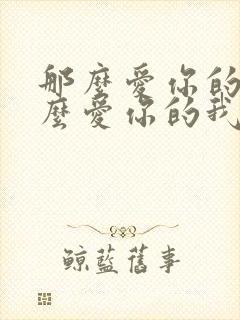 那麼愛你的
麼愛你的我
鯨藍舊事